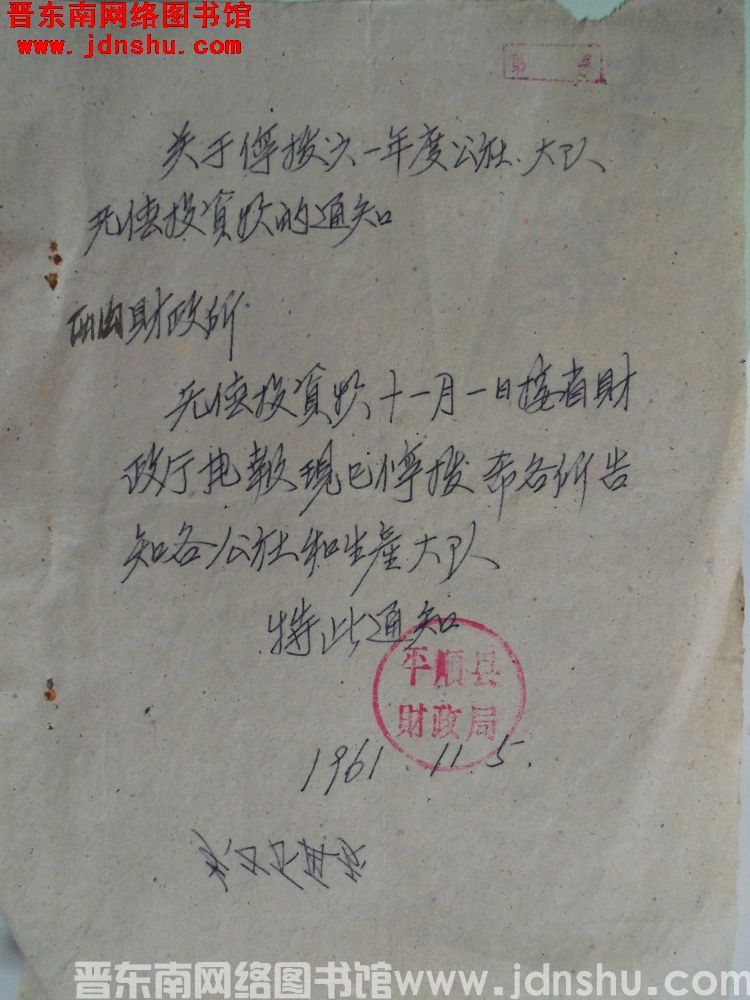 晋东南网络图书馆
www.jdnshu.com
第
关于停拨六一年度公社、大队
无偿投资款的通知
财政所.
无偿投资款十一月一日接省财
政厅电报现已停拨希各所告
知各公社和生产大队
特此通知
平順县
財政局
1961.11.5.
晋东南网络图书馆www.jdnshu.com